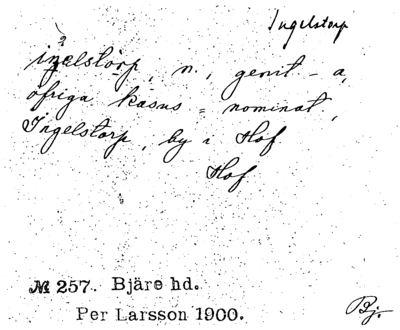 Ingelstorp
ingelstorp, n., genit. - a,
öfriga kasus = nominat.,
Ingelstorp, by i Hof
Hof
№ 257. Bjäre hd.
Per Larsson 1900.
Bj.